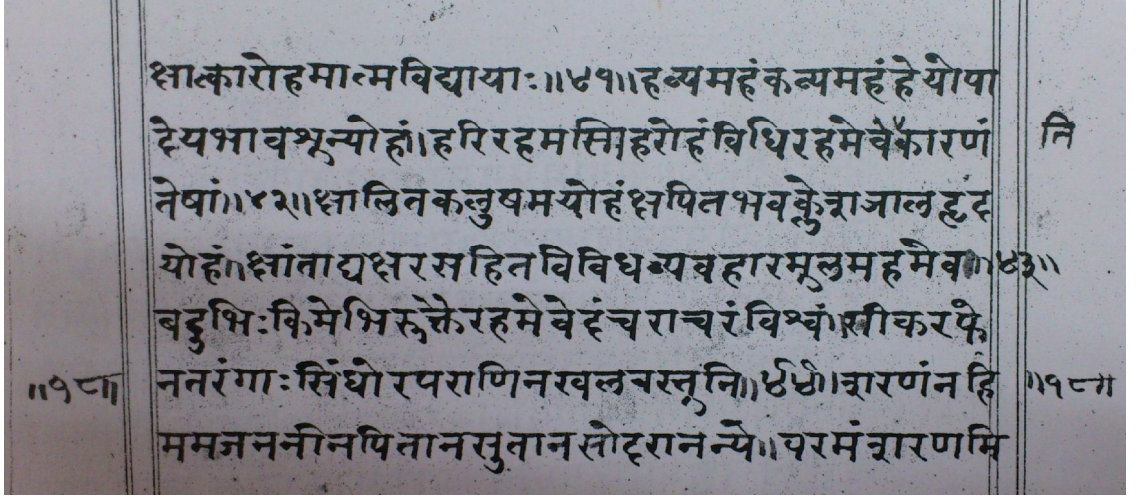 क्षात्कारोहमात्मविद्यायाः॥४१॥हव्यमहंकव्यमहंहेयोपा
देयभावशून्योहं।हरिरहमस्मिहरोहंविधिरहमेवैकारणं
नि
तेषां॥४२॥क्षालितकलुषमयोहंक्षपितभवक्लेशजालहृद
योहं॥क्षांताद्यक्षरसहितविविधव्यवहारमूलमहमेव॥४३॥
बहुभिःकिमेभिरुक्तैरहमेवेदंचराचरंविश्वं॥सीकरफे
॥१८॥ नतरंगाःसिंधोरपराणिनखलुवस्तूनि॥४४॥शरणंनहि ॥१८॥
ममजननीनपितानसुतानसोदरानन्ये॥परमंशरणमि